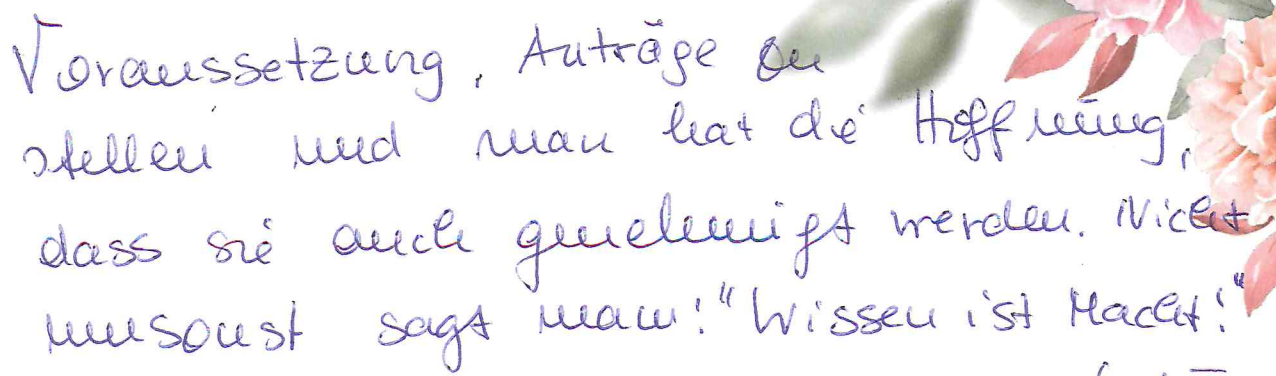 Voraussetzung, Anträge zu
stellen und man hat die Hoffnung,
dass sie auch genehmigt werden. Nicht
umsonst sagt man: "Wissen ist Macht!"